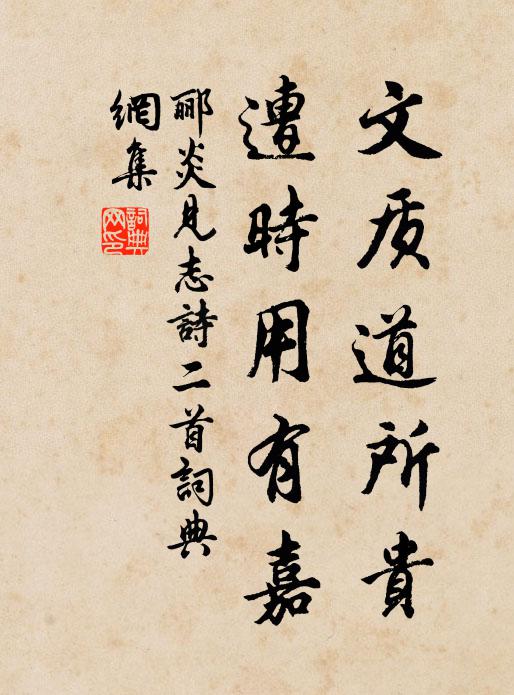 文质道所貴
遭時用有嘉
郦炎見志詩二首詞典
網集
詞典
网印